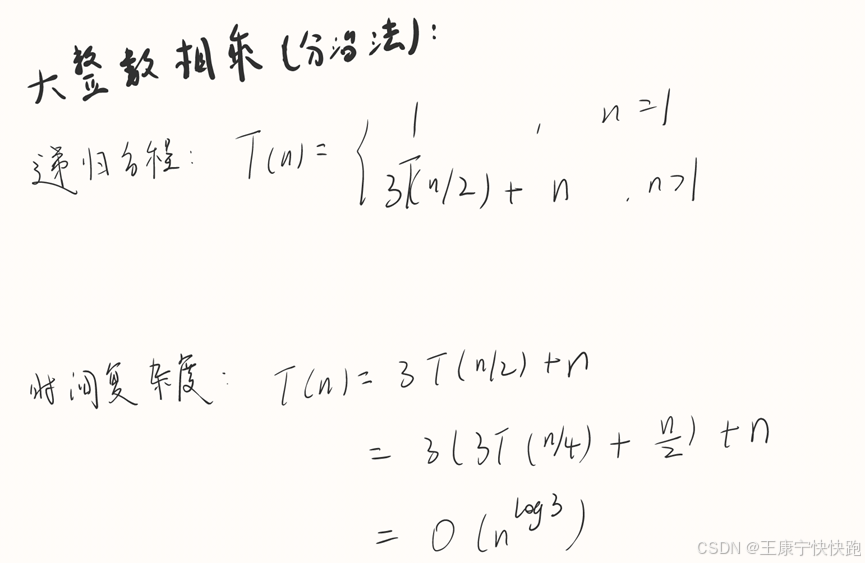 大整数相乘(分治法):
递归方程: T(n) = { 1 , n=1
3T(n/2) + n , n>1
时间复杂度: T(n) = 3T(n/2) + n
= 3(3T(n/4) + n/2) + n
= O(n^log3)
CSDN @王康宁快快跑